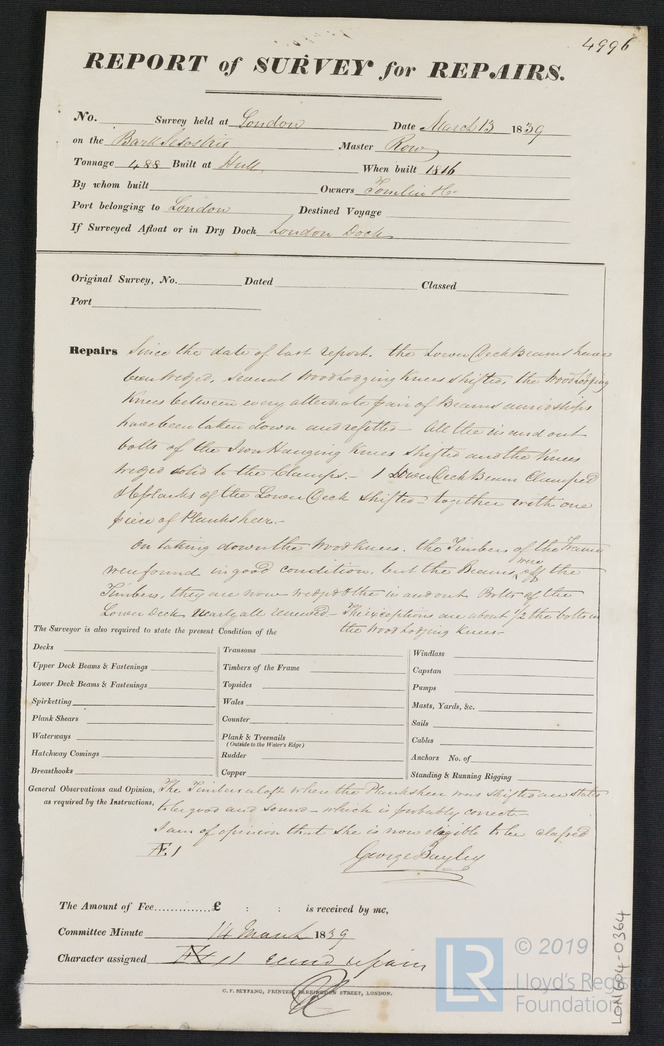 4996
REPORT of SURVEY for REPAIRS.
No. Survey held at London Date March 13 1839
on the Bark Sesostris Master Row
Tonnage 488 Built at Hull When built 1816
By whom built Owners Tomlin &Co
Port belonging to London Destined Voyage
If Surveyed Afloat or in Dry Dock London Dock
Original Survey, No. Dated Classed
Port
Repairs Since the date of last report. the Lower Deck Beams have
been wedged, several Wood Lodging Knees shifted, the Wood Lodging
Knees between every alternate pair of Beams amidships
have been taken down and refitted - All the in and out
bolts of the Iron Hanging Knees shifted and the Knees
wedged solid to the Clamps. - 1 Lower Deck Beam Clamped
Planks of the Lower Deck shifted - together with one
piece of Planksheer. -
On taking down the Wood Knees. the Timbers of the Frame
were found in good condition, but the Beams were off the
Timbers, they are now wedged & the in and out Bolts of the
Lower Deck nearly all renewed - The exceptions are about 1/2 the bolts in
the Wood Lodging Knees -
The Surveyor is also required to state the present Condition of the
Decks Transoms Windlass
Upper Deck Beams & Fastenings Timbers of the Frame Capstan
Lower Deck Beams & Fastenings Topsides Pumps
Spirketting Wales Masts, Yards, &c.
Plank Shears Counter Sails
Waterways Plank & Treenails Cables
(Outside to the Water's Edge)
Hatchway Comings Rudder Anchors No. of
Breasthooks Copper Standing & Running Rigging
General Observations and Opinion, The Timbers aloft where the Planksheer was shifted are stated
as required by the Instructions, to be good and sound - which is probably correct -
I am of opinion that she is now eligible to be classed
Æ 1
George Bayley
The Amount of Fee.............. £ : : is received by me,
Committee Minute 14 March 1839
Character assigned Æ 1 repair
C. F. SEYFANG, PRINTER, FARRINGDON STREET, LONDON.
LR
© 2019
Lloyd's Register
Foundation
LON604-0364